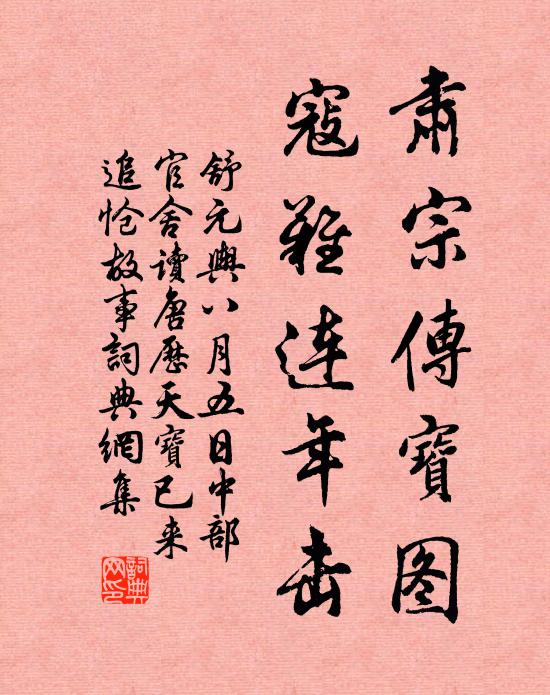 肃宗傳寶图
寇難连年击
舒元輿八月五日中部
官舍讀唐歷天寶已来
追怆故事詞典網集
詞典网印